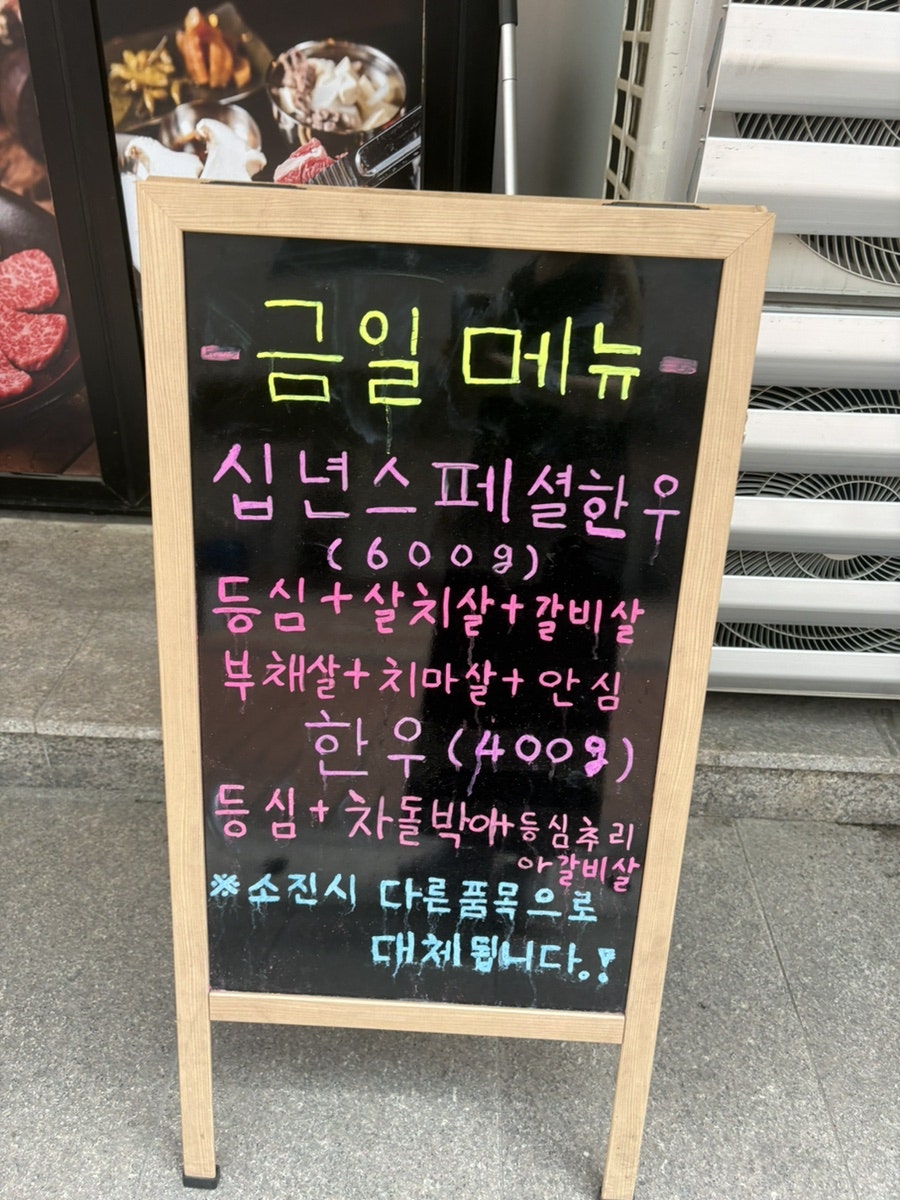 - 금일 메뉴 -
십년스페셜한우
(600g)
등심+살치살+갈비살
부채살+치마살+안심
한우(400g)
등심+차돌박이+등심추리
or갈비살
※소진시 다른품목으로
대체됩니다.!